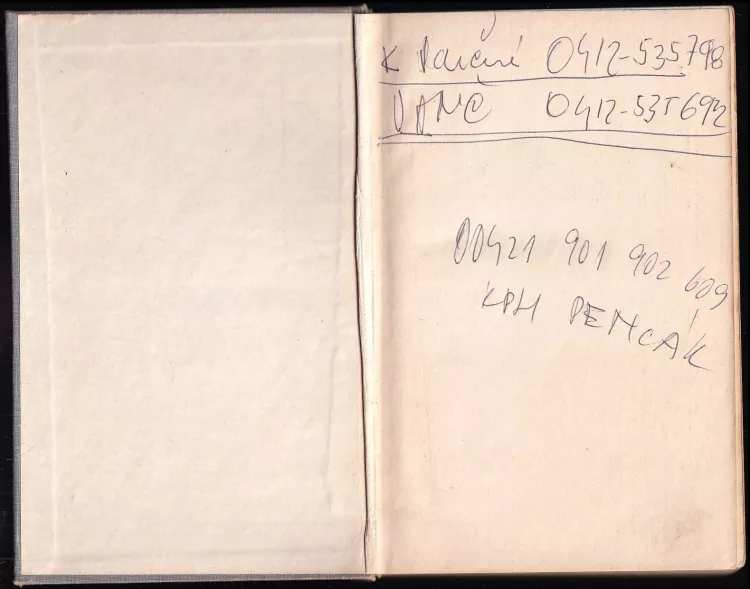 K 0412-535798
VANĚ 0412-535692
00421 901 902 609
KPH PEMCÁK